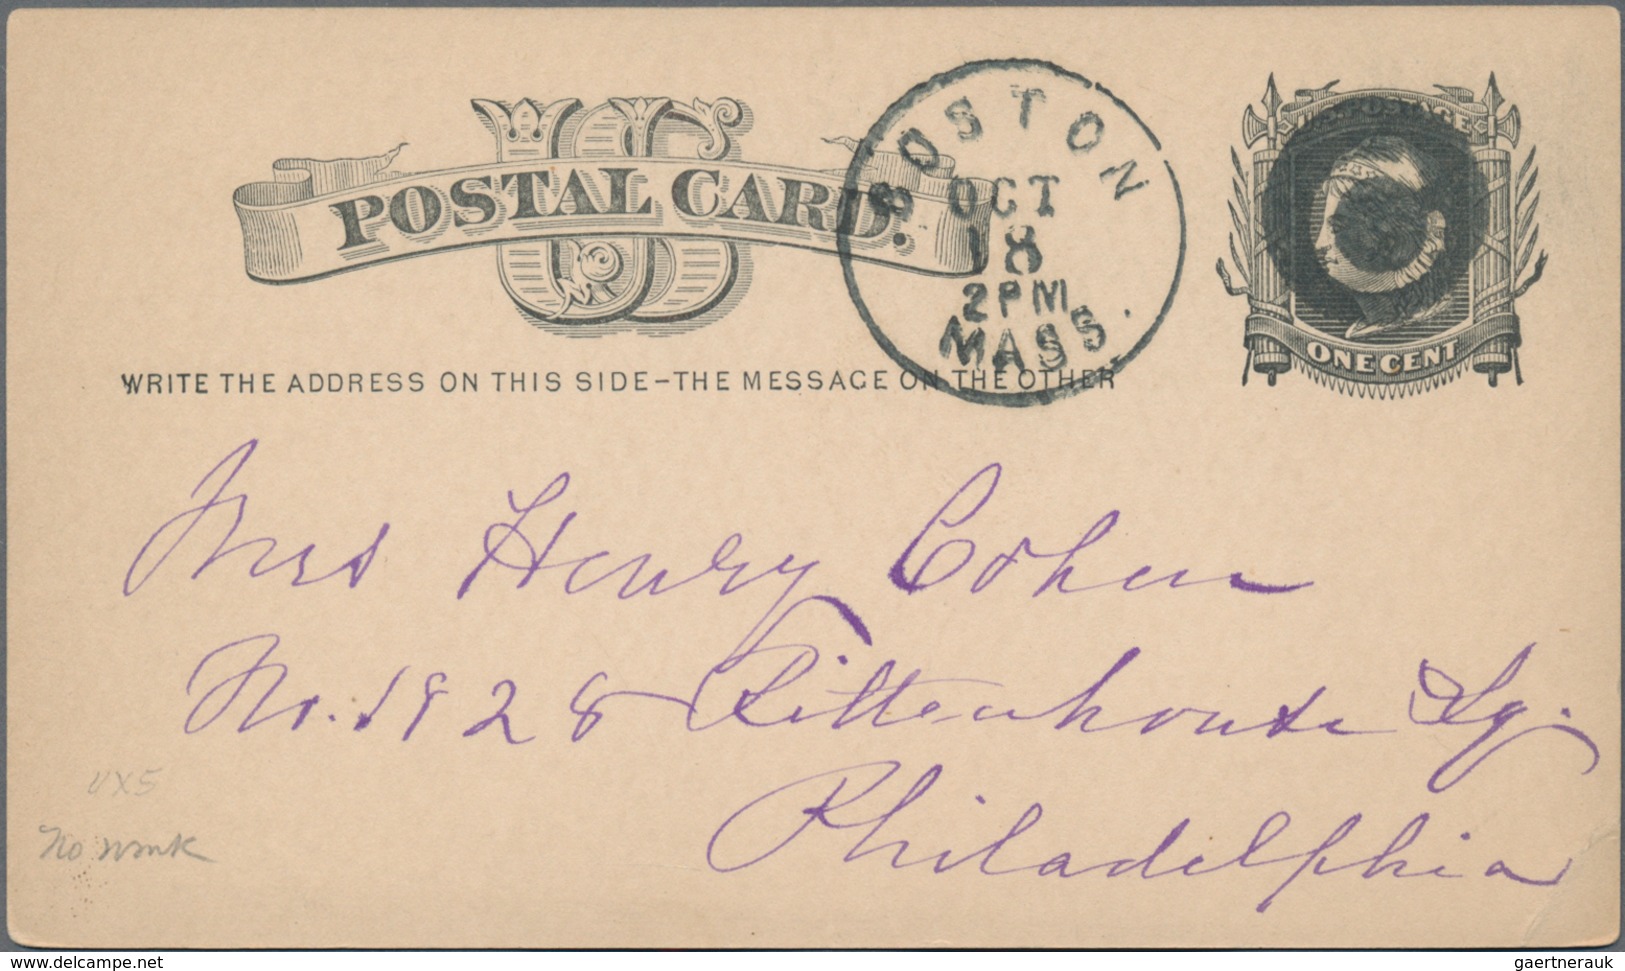 US
POSTAL CARD.
BOSTON
OCT
18
2 PM
MASS.
U.S. POSTAGE
ONE CENT
WRITE THE ADDRESS ON THIS SIDE-THE MESSAGE ON THE OTHER
Mrs Henry Cohen
No. 1928 Rittenhouse Sq.
Philadelphia
UX5
No wmk
www.delcampe.net
gaertnerauk